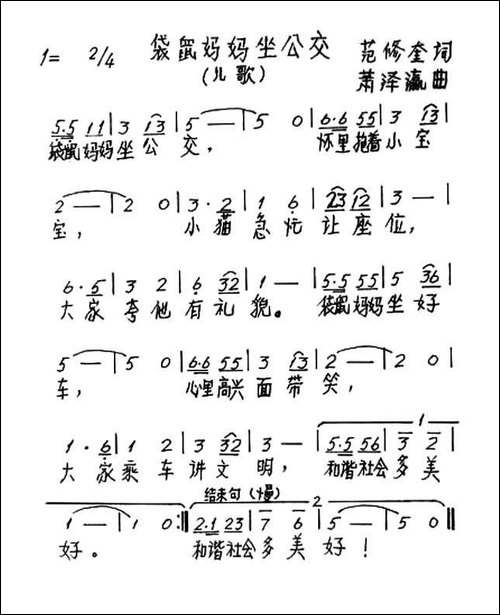 袋鼠妈妈坐公交
(儿歌)
1= 2/4
范修奎词
萧泽瀛曲
5·5 1 1 | 3 1 3 | 5 — | 5 0 | 6·6 5 5 | 3 1 3 |
袋鼠妈妈坐公交, 怀里抱着小宝
2 — | 2 0 | 3·2 | 1 6 | 23 12 | 3 — |
宝, 小猫急忙让座位,
6·5 | 3 2 | 6 32 | 1 — | 5·5 55 | 5 36 |
大家夸他有礼貌。 袋鼠妈妈坐好
5 — | 5 0 | 6·6 55 | 3 13 | 2 — | 2 0 |
车, 心里高兴面带笑,
1·6 | 1 2 | 3 32 | 3 — | 5·5 56 | 3 2 |
大家乘车讲文明, 和谐社会多美
1
结束句(慢) 2
1 — | 1 0 :‖ 2·1 23 | 7 6 | 5 — | 5 0 ‖
好。 和谐社会多美好!